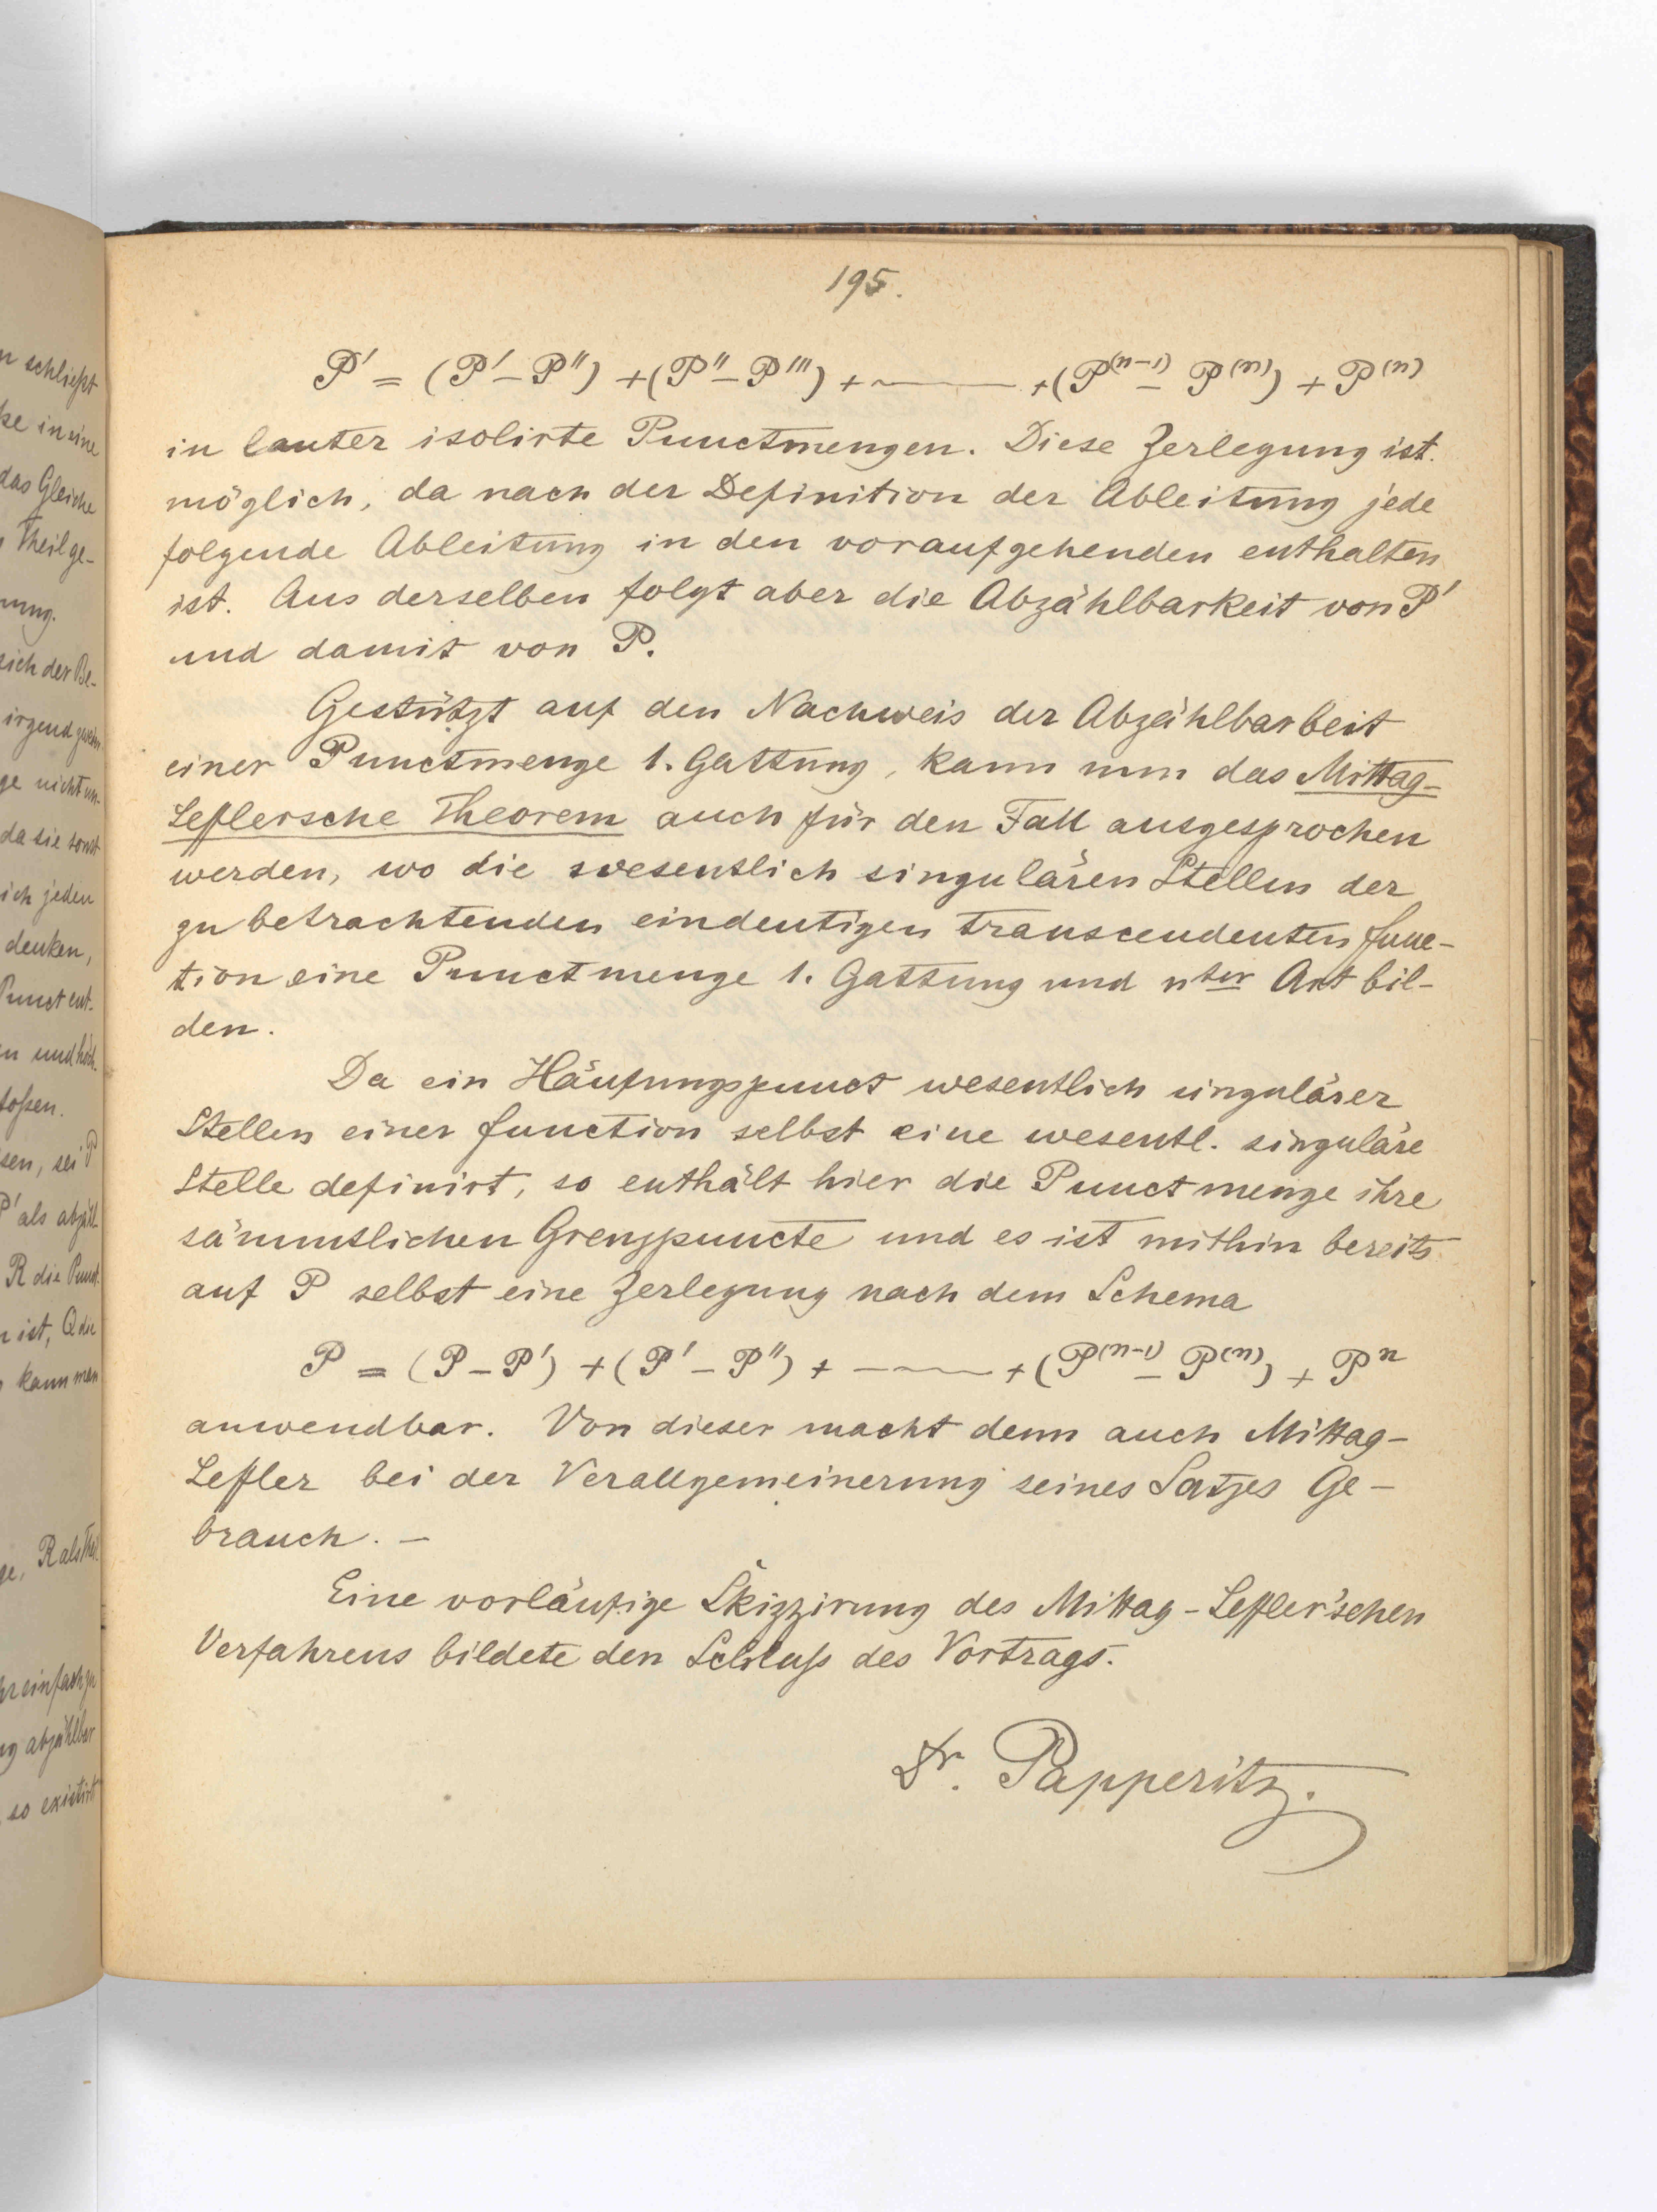 n schließt
ke in eine
das Gleiche
Theil ge-
nung.
sich der Be-
irgend
ge nicht un-
da sie sonst
ich jeden
denken,
Punct ent-
en und höch-
toßen.
sen, sei P
P' als abzähl-
R die Punct-
n ist, Q die
kann man
ge, R als Theil
hr einfach zu
ng abzählbar
so existirt
195.
P' = (P' – P'') + (P'' – P''') + ——— + (P^(n-1) – P^(n)) + P^(n)
in lauter isolirte Punctmengen. Diese Zerlegung ist
möglich, da nach der Definition der Ableitung jede
folgende Ableitung in den voraufgehenden enthalten
ist. Aus derselben folgt aber die Abzählbarkeit von P'
und damit von P.
Gestützt auf den Nachweis der Abzählbarbeit
einer Punctmenge 1. Gattung, kann nun das Mittag-
Leflersche Theorem auch für den Fall ausgesprochen
werden, wo die wesentlich singulären Stellen der
zu betrachtenden eindeutigen transcendenten Func-
tion eine Punctmenge 1. Gattung und nter Art bil-
den.
Da ein Häufungspunct wesentlich singulärer
Stellen einer Function selbst eine wesentl. singuläre
Stelle definirt, so enthält hier die Punctmenge ihre
sämmtlichen Grenzpuncte und es ist mithin bereits
auf P selbst eine Zerlegung nach dem Schema
P = (P – P') + (P' – P'') + ——— + (P^(n-1) – P^(n)) + P^n
anwendbar. Von dieser macht denn auch Mittag-
Lefler bei der Verallgemeinerung seines Satzes Ge-
brauch. –
Eine vorläufige Skizzirung des Mittag-Lefler'schen
Verfahrens bildete den Schluß des Vortrags.
Dr. Papperitz.